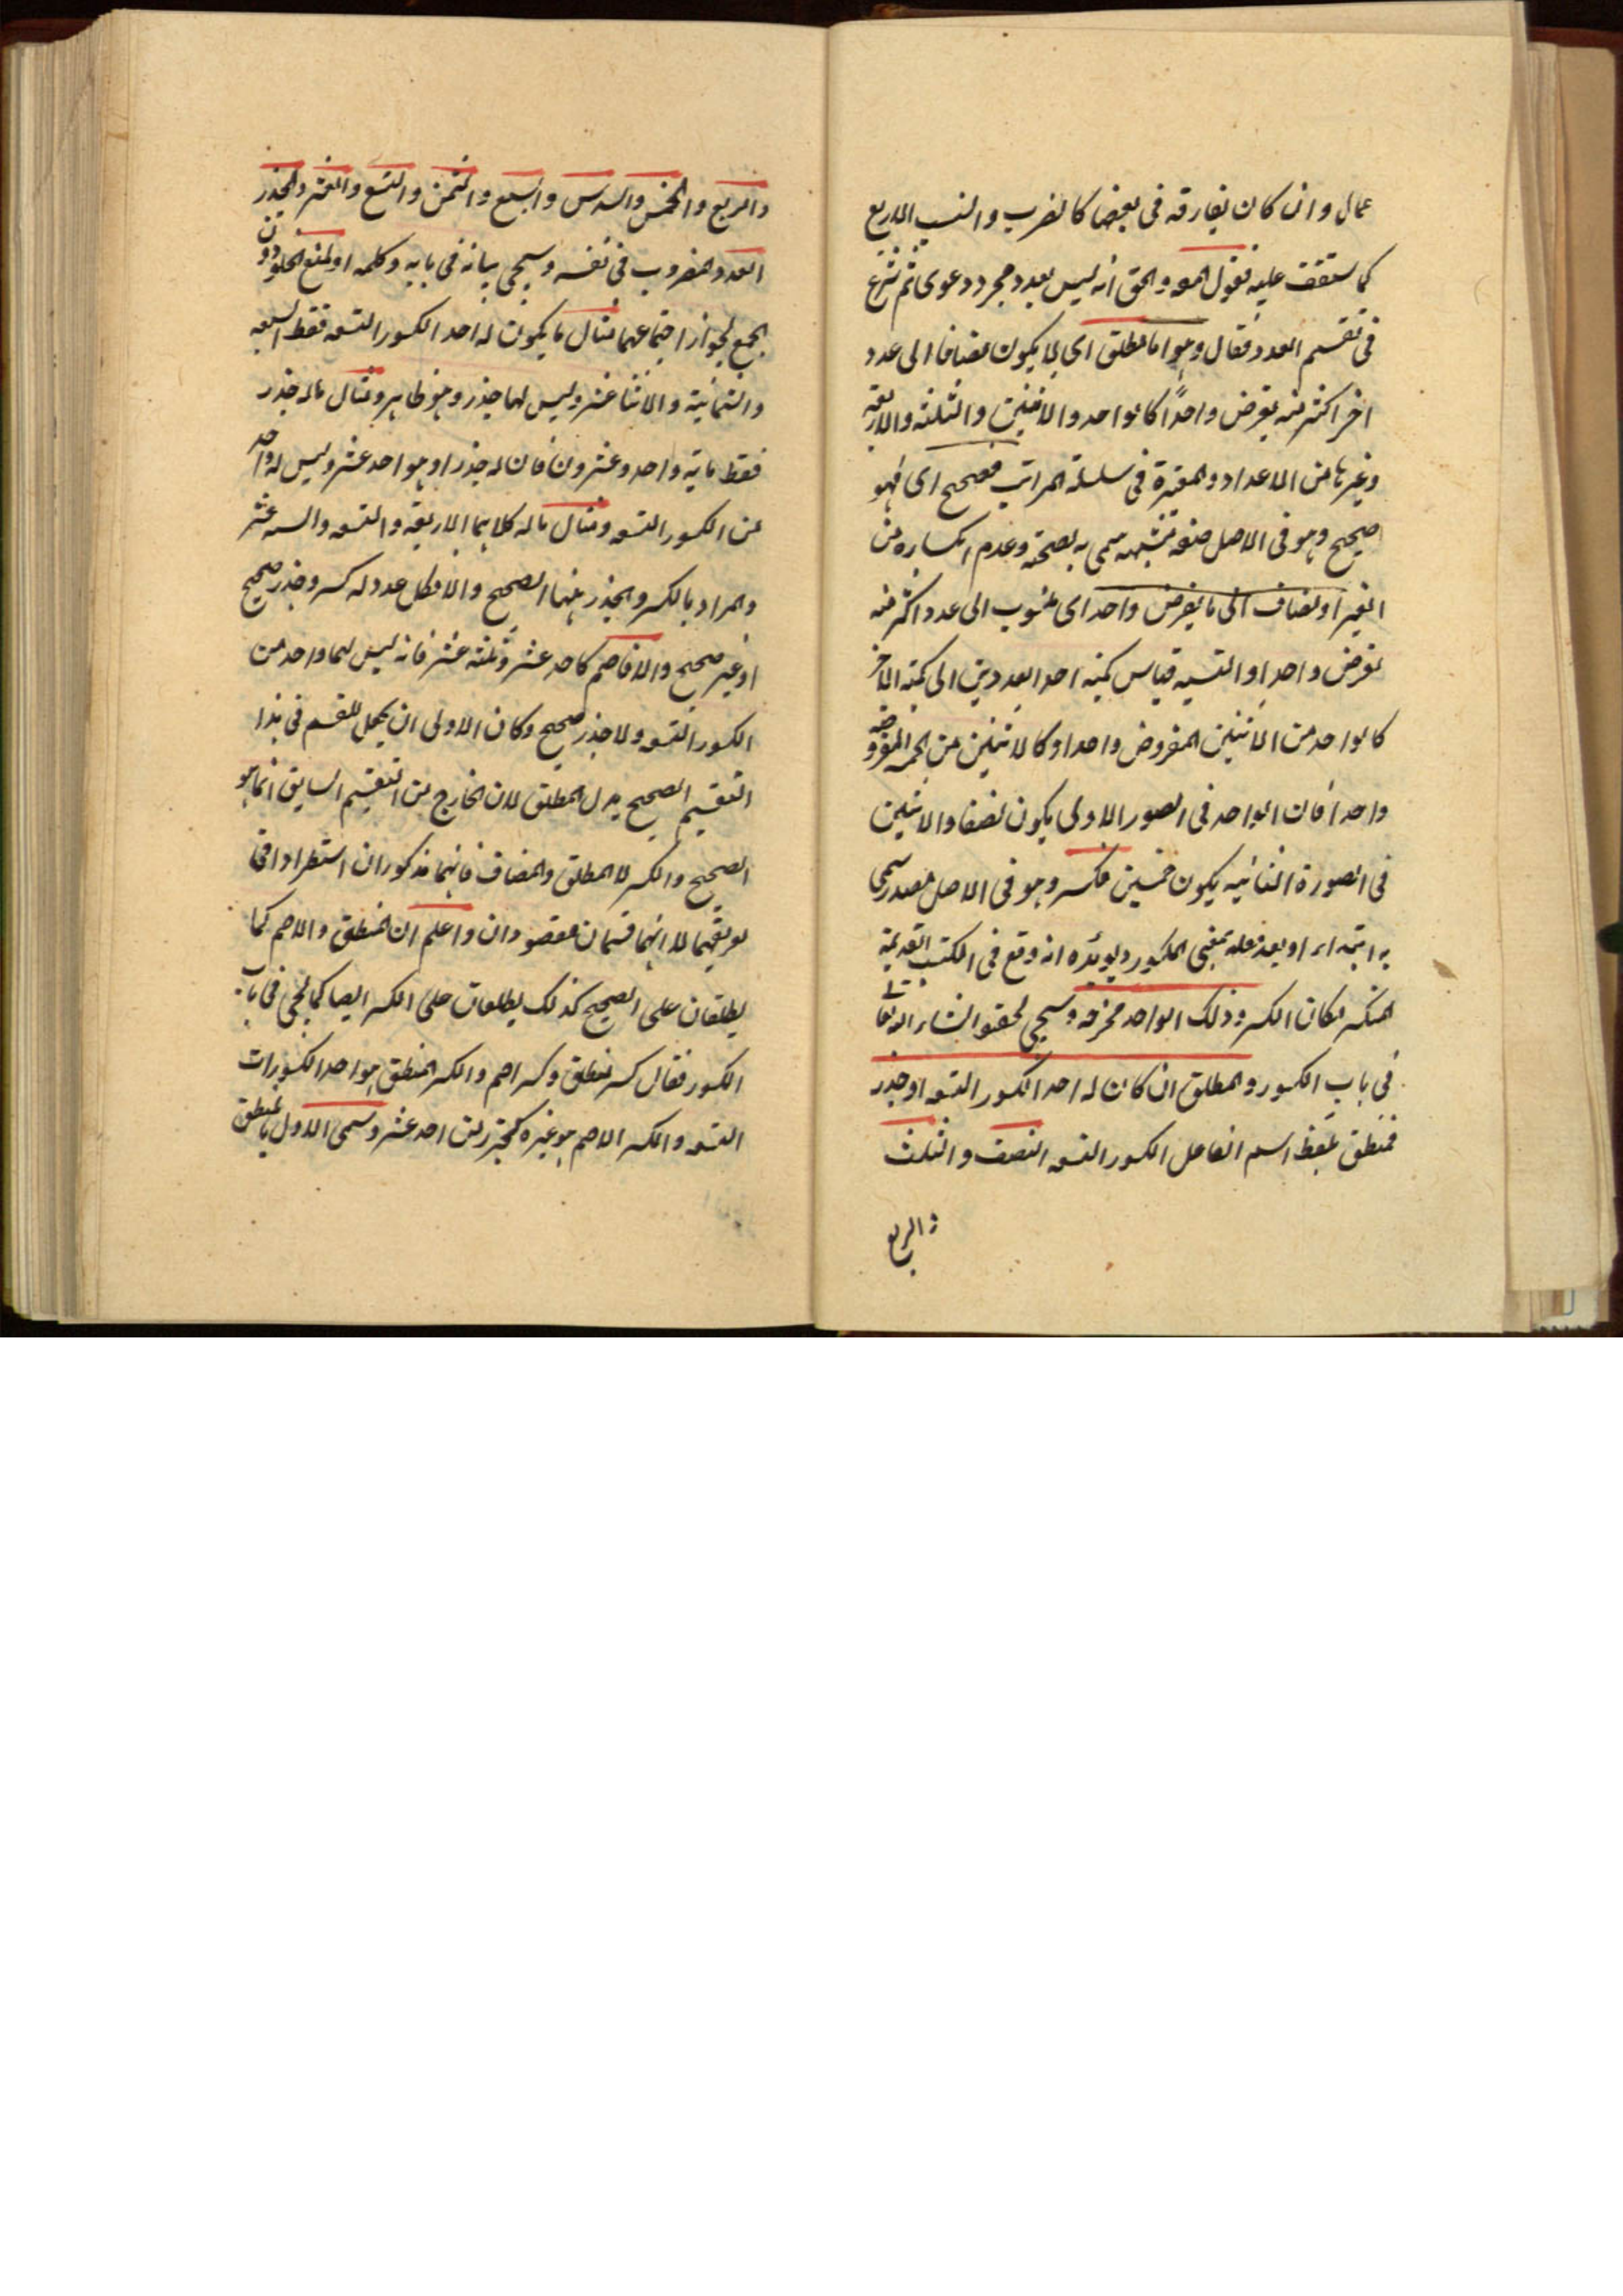 عمال وان كان يفارقه فى بعضها كالضرب والنسب الاربع
كما ستقف عليه فقول المص والحق انه ليس بعدد مجرد دعوى ثم شرع
فى تقسيم العدد فقال وهو اما مطلق اى لا يكون مضافا الى عدد
اخر اكثر منه يفرض واحدًا كالواحد والاثنين والثلثة والاربعة
وغيرها من الاعداد المعتبرة فى سلسلة المراتب فصحيح اى فهو
صحيح وهو فى الاصل صفة مشبهة سمى به لصحته وعدم انكساره من
الغير او مضاف الى ما يفرض واحدا اى منسوب الى عدد اكثر منه
يفرض واحدا والنسبة قياس كمية احد العددين الى كمية الاخر
كالواحد من الاثنين المفروض واحدا وكالاثنين من الخمسة المفروضة
واحدا فان الواحد فى الصور الاولى يكون نصفا والاثنين
فى الصورة الثانية يكون خمسين فكسر وهو فى الاصل مصدر سمى
به ابتداء او بعد نقله بمعنى المكسور ويؤيده انه وقع فى الكتب القديمة
المنكسر مكان الكسر وذلك الواحد مخرجه وسيجى تحقيقه انشاء الله تعالى
فى باب الكسور والمطلق ان كان له احد الكسور التسعة او جذر
فمنطق بلفظ اسم الفاعل الكسور التسعة النصف والثلث
والربع
والربع والخمس والسدس والسبع والثمن والتسع والعشر والجذر
العدد المضروب فى نفسه وسيجى بيانه فى بابه وكلمه او لمنع الخلو دون
الجمع لجواز اجتماعهما مثال ما يكون له احد الكسور التسعة فقط السبعة
والثمانية والاثنا عشر وليس لها جذر وهو ظاهر ومثال ماله جذر
فقط ماية واحد وعشرون فان له جذرا وهو احد عشر وليس له واحد
من الكسور التسعة ومثال ماله كلاهما الاربعة والتسعة والستة عشر
والمراد بالكسر والجذر هنا الصحيح والا فكل عدد له كسر وجذر صحيح
او غير صحيح والا فاصم كاحد عشر وثلثة عشر فانه ليس لهما واحد من
الكسور التسعة ولا جذر صحيح وكان الاولى ان يجعل المقسم فى هذا
التقسيم الصحيح بدل المطلق لان الخارج من التقسيم السابق انما هو
الصحيح والكسر لا المطلق والمضاف فانهما مذكوران استطرادا فى
تعريفهما لا انهما قسمان مقصودان واعلم ان المنطق والاصم كما
يطلقان على الصحيح كذلك يطلقان على الكسر ايضا كما يجى فى باب
الكسور فقال كسر منطق وكسر اصم والكسر المنطق هو احد الكسورات
التسعة والكسر الاصم هو غيره كجزء من احد عشر وسمى الاول بالمنطق